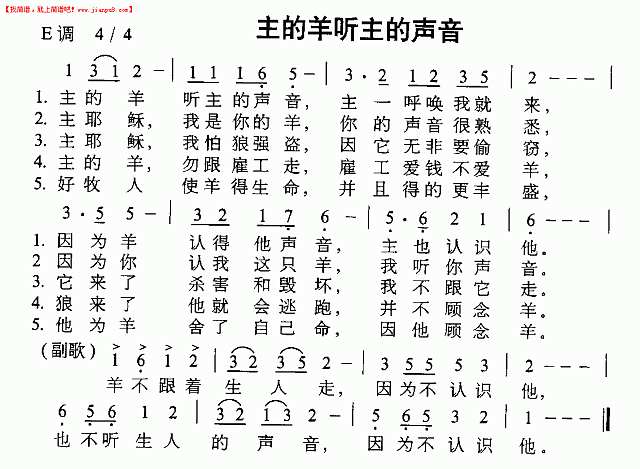 【找简谱，就上简谱吧！www.jianpu8.com】
E调 4/4
主的羊听主的声音
1 3 1 2 - | 1 1 1 6 5 - | 3 · 2 1 2 3 5 | 2 - - - |
1. 主的羊 听主的声音， 主一呼唤我就来，
2. 主耶稣， 我是你的羊， 你的声音很熟悉，
3. 主耶稣， 我怕狼强盗， 因它无非要偷窃，
4. 主的羊， 勿跟雇工走， 雇工爱钱不爱羊，
5. 好牧人 使羊得生命， 并且得的更丰盛，
3 · 5 5 - | 3 2 1 7 6 - | 5 · 6 2 1 | 6 - - - |
1. 因为羊 认得他声音， 主也认识他。
2 因为你 认我这只羊， 我听你声音。
3. 它来了 杀害和毁坏， 我不跟它走。
4. 狼来了 他就会逃跑， 并不顾念羊。
5. 他为羊 舍了自己命， 因他顾念羊。
(副歌) 1 6 1 2 | 3 2 3 5 - | 3 5 5 5 3 | 2 - - - |
羊不跟着生人走， 因为不认识他，
6 5 6 1 2 | 3 2 1 3 2 - | 5 6 6 3 2 | 1 - - - ‖
也不听生人的声音， 因为不认识他。